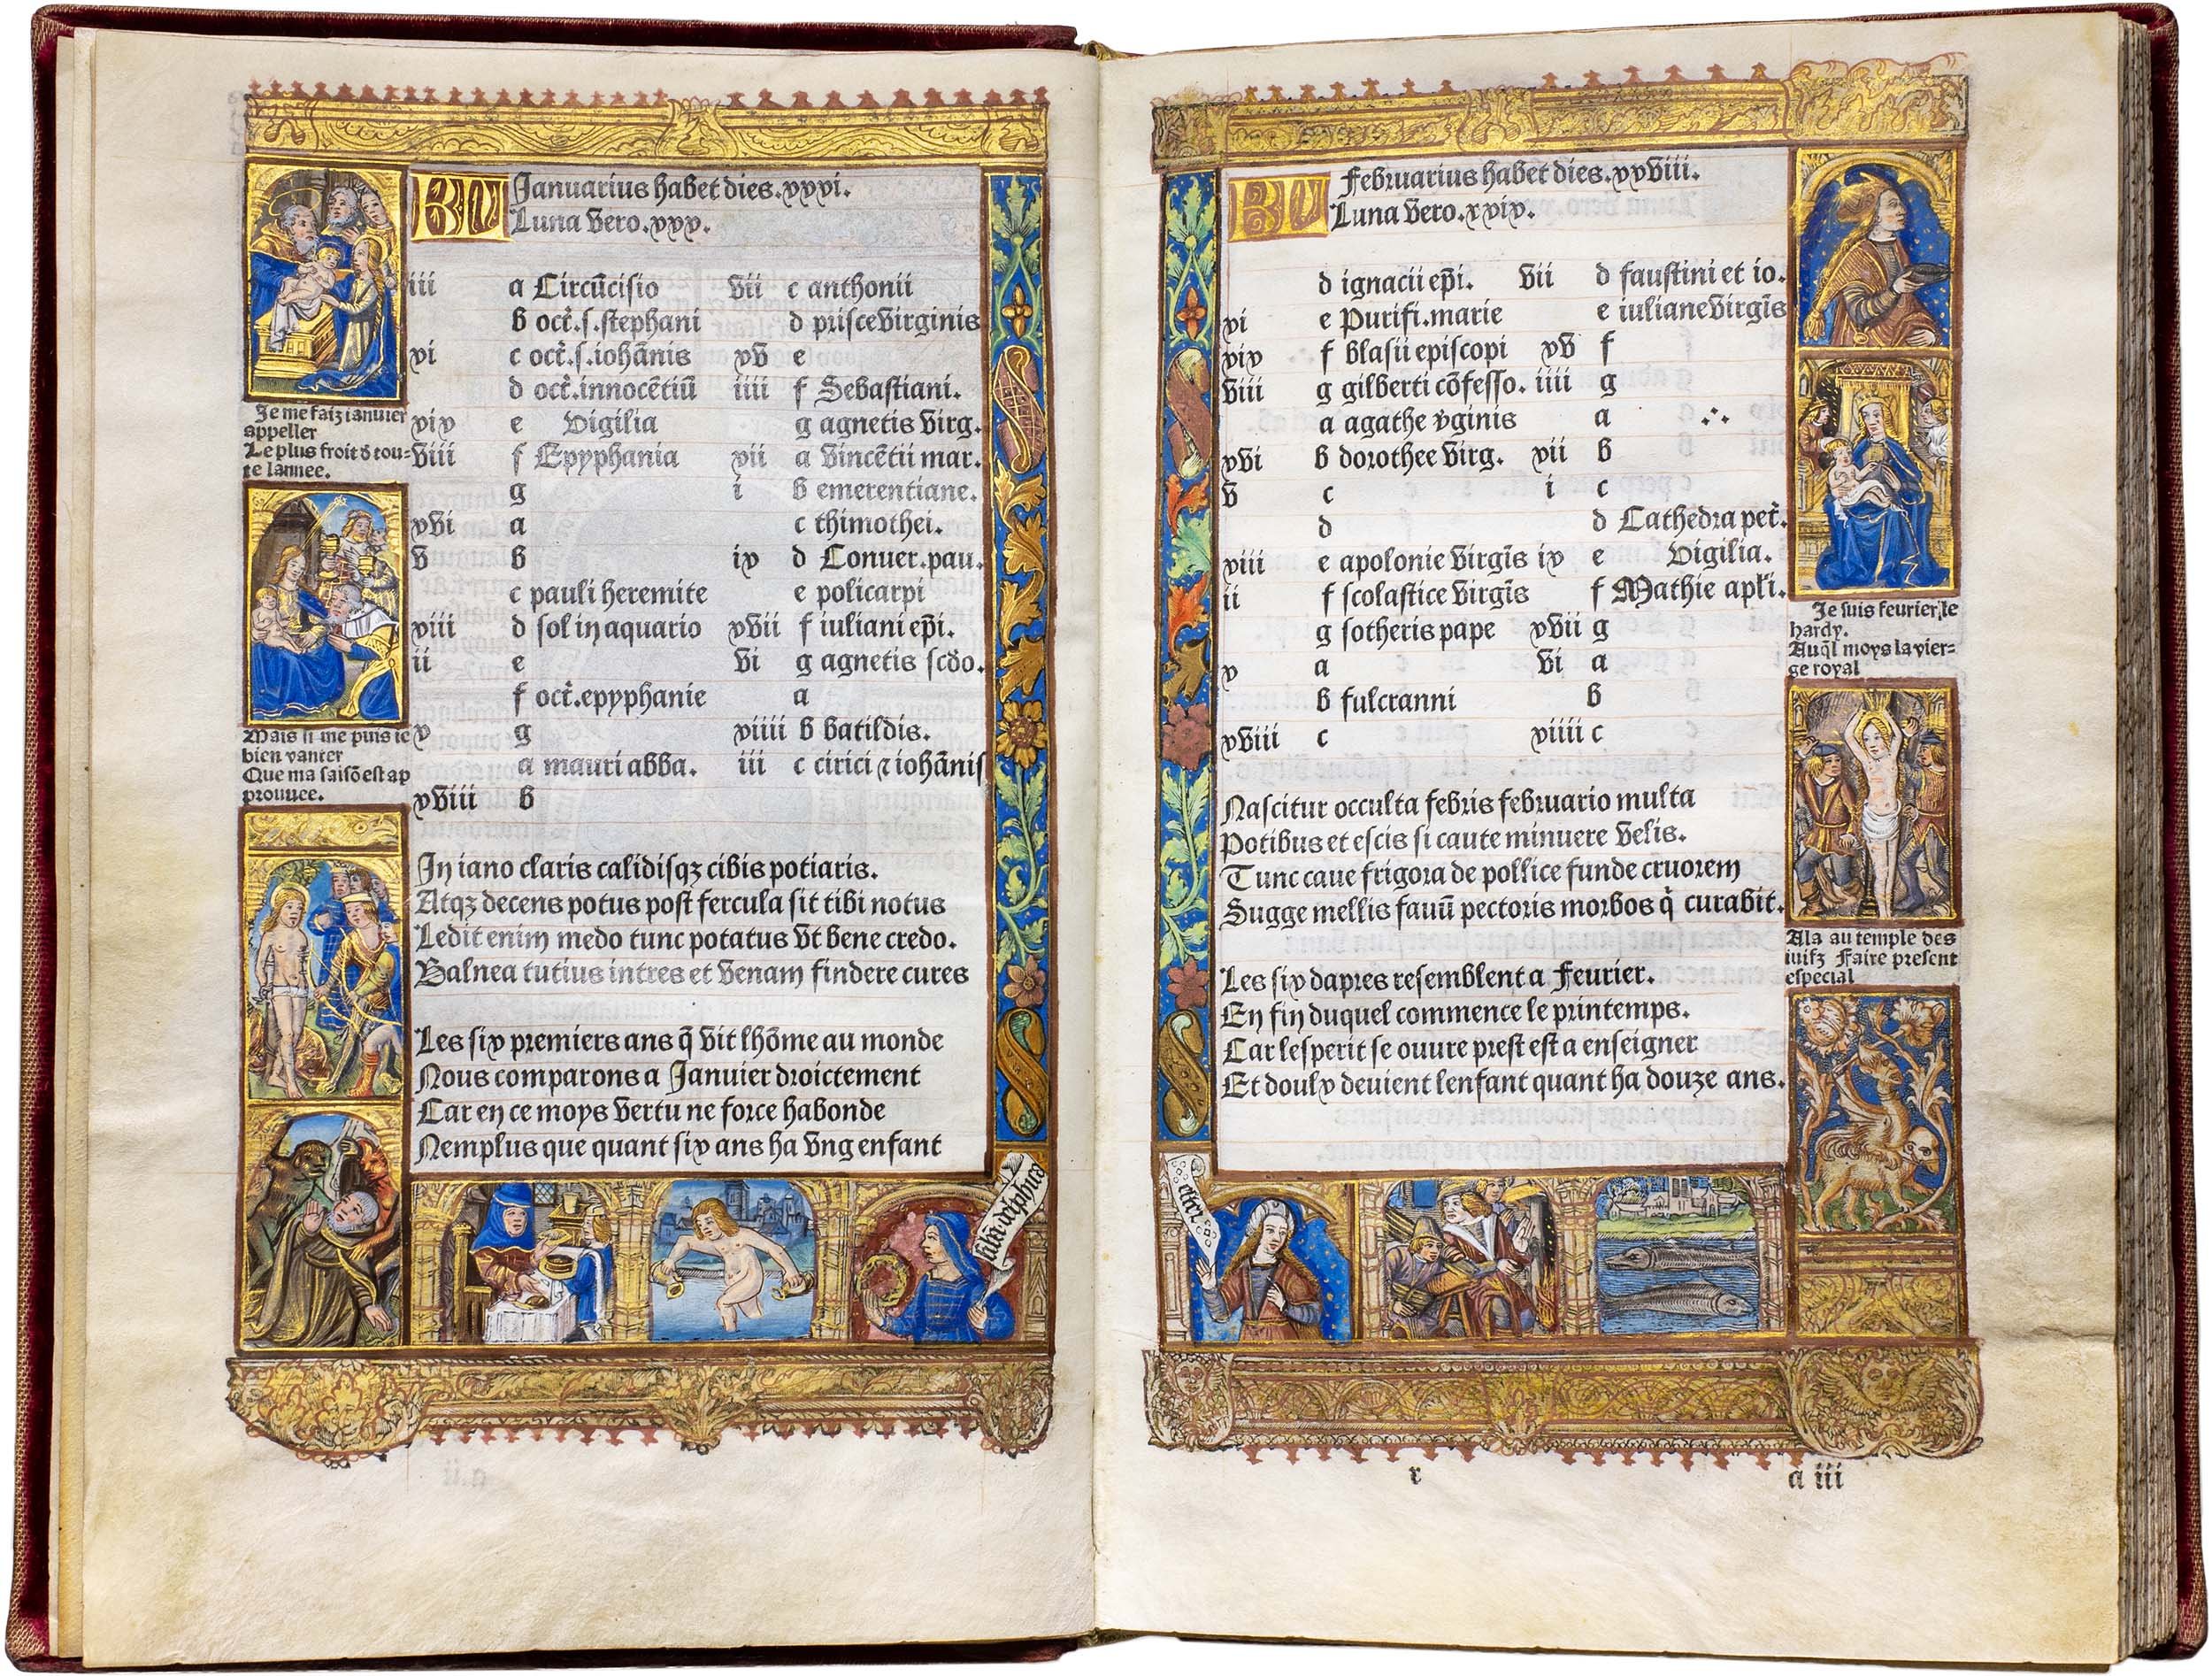 KL Januarius habet dies.xxxi.
Luna vero.xxx.
iii a Circūcisio
b oct̄.s.stephani
xi c oct̄.s.iohānis
d oct̄.innocētiū
xix e Vigilia
viii f Epyphania
g
xvi a
v b
c pauli heremite
xiii d sol in aquario
ii e
f oct̄.epyphanie
x g
a mauri abba.
xviii b
vii c anthonii
d prisce virginis
xv e
iiii f Sebastiani.
g agnetis virg.
xii a vincētii mar.
i b emerentiane.
c thimothei.
ix d Conuer.pau.
e policarpi
xvii f iuliani ep̄i.
vi g agnetis scdo.
a
xiiii b batildis.
iii c cirici ⁊ iohānis
In iano claris calidisqꝫ cibis potiaris.
Atqꝫ decens potus post fercula sit tibi notus
Ledit enim medo tunc potatus vt bene credo.
Balnea tutius intres et venam findere cures
Les six premiers ans q̄ vit lhōme au monde
Nous comparons a Januier droictement
Car en ce moys vertu ne force habonde
Nemplus que quant six ans ha vng enfant
Je me faiz ianuier
appeller
Le plus froit d tou-
te lannee.
Mais si me puis ie
bien vanter
Que ma saisō est ap
prouuee.
a.ii
KL Februarius habet dies.xxviii.
Luna vero.xxix.
d ignacii ep̄i.
xi e Purifi.marie
xix f blasii episcopi
viii g gilberti cōfesso.
a agathe v̄ginis
xvi b dorothee virg.
v c
d
xiii e apolonie virgīs
ii f scolastice virgīs
g sotheris pape
x a
b fulcranni
xviii c
vii d faustini et io.
e iuliane virgīs
xv f
iiii g
a
xii b
i c
d Cathedra pet̄.
ix e Vigilia.
f Mathie apl̄i.
xvii g
vi a
b
xiiii c
Nascitur occulta febris februario multa
Potibus et escis si caute minuere velis.
Tunc caue frigora de pollice funde cruorem
Sugge mellis fauū pectoris morbos q̇ curabit.
Les six dapres resemblent a Feurier.
En fin duquel commence le printemps.
Car lesperit se ouure prest est a enseigner
Et doulx deuient lenfant quant ha douze ans.
Je suis feurier, le
hardy.
Auq̄l moys la vier-
ge royal
Ala au temple des
iuifz Faire present
especial
a iii